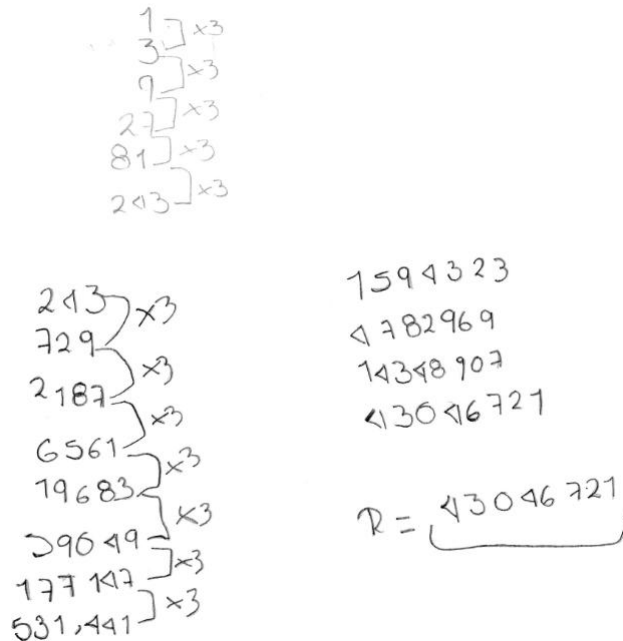 1
3 ×3
9 ×3
27 ×3
81 ×3
243 ×3
243
729 ×3
2187 ×3
6561 ×3
19683 ×3
59049 ×3
177147 ×3
531,441 ×3
1594323
4782969
14348907
43046721
R = 43046721